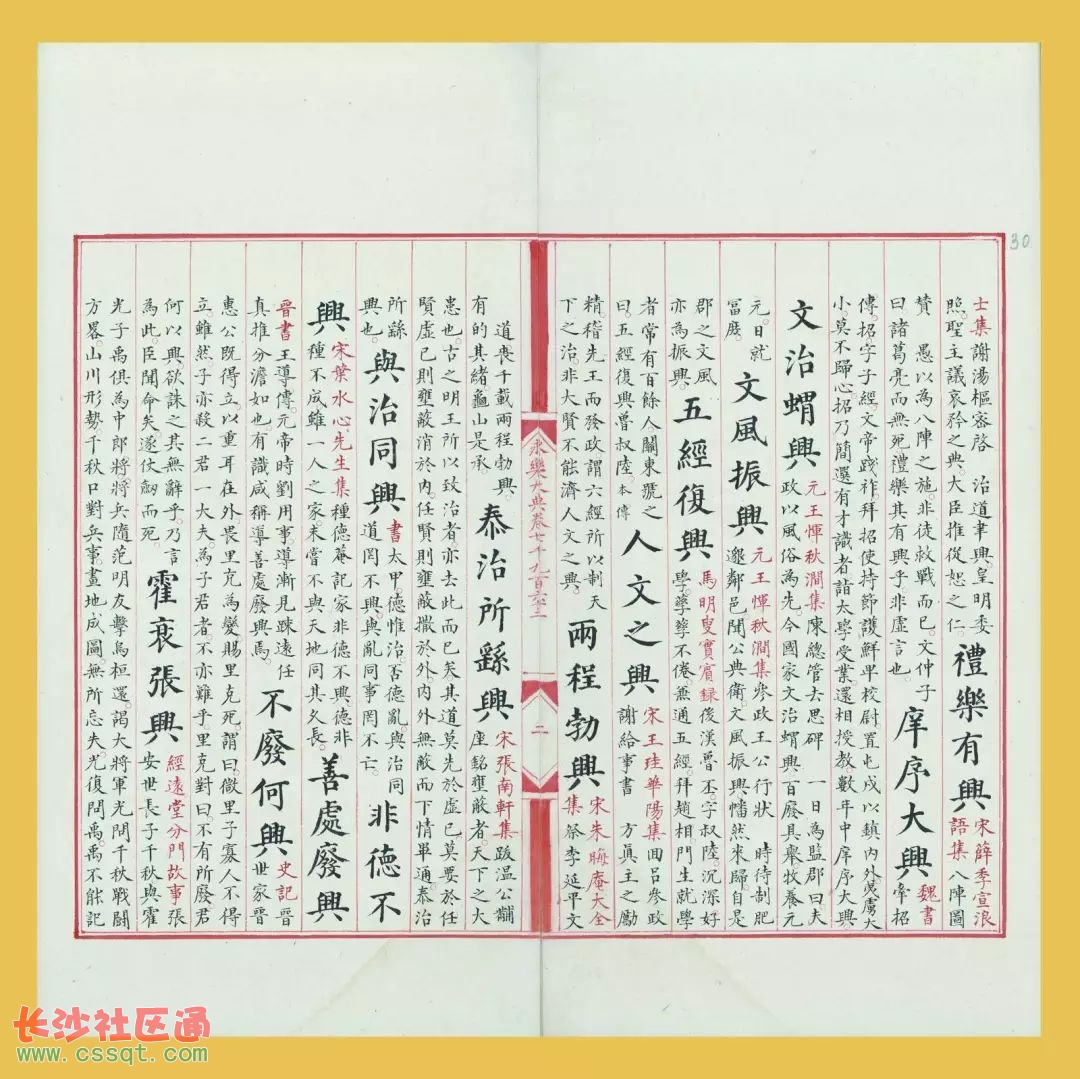 30
士集謝湯樞密啓　治道聿興皇明委
照聖主議哀矜之典大臣推從恕之仁
禮樂有興
宋薛季宣浪
語集八陣圖
贊　愚以為八陣之施非徒救戰而已文仲子
曰諸葛亮而無死禮樂其有興乎非虛言也
庠序大興
魏書
牽招
傳招字子經文帝踐祚拜招使持節護鮮卑校尉置屯戍以鎮內外虜大
小莫不歸心招乃簡選有才識者詣太學受業還相授教數年中庠序大興
文治蝟興
元王惲秋澗集陳總管去思碑　一日為監郡曰夫
政以風俗為先今國家文治蝟興百廢具舉牧養元
元日就
冨庶
文風振興
元王惲秋澗集參政王公行狀　時待制肥
邀鄰邑聞公典衛文風振興幡然來歸自是
郡之文風
亦為振興
五經復興
馬明叟實賓録後漢魯丕字叔陵沉深好
學孳孳不倦兼通五經拜趙相門生就學
者常有百餘人關東號之
曰五經復興魯叔陵本傳
人文之興
宋王珪華陽集回呂參政
謝給事書　方眞主之勵
精稽先王而發政謂六經所以制天
下之治非大賢不能濟人文之典
兩程勃興
宋朱晦庵大全
集祭李延平文
永樂大典卷七千九百六十二
二
道喪千載兩程勃興
有的其緒龜山是承
泰治所繇興
宋張南軒集跋溫公黼
座銘壅蔽者天下之大
患也古之明王所以致治者亦去此而已矣其道莫先於虛已莫要於任
賢虛已則壅蔽消於內任賢則壅蔽撤於外內外無蔽而下情畢通泰治
所繇
興也
與治同興
書太甲德惟治否德亂與治同
道罔不興與亂同事罔不亡
非德不
興
宋葉水心先生集種德菴記家非德不興德非
種不成雖一人之家未嘗不與天地同其久長
善處廢興
晉書王導傳元帝時劉用事導漸見踈遠任
真推分澹如也有識咸稱導善處廢興焉
不廢何興
史記晉
世家晉
惠公既得立以重耳在外畏里克為變賜里克死謂曰微里子寡人不得
立雖然子亦殺二君一大夫為子君者不亦難乎里克對曰不有所廢君
何以興欲誅之其無辭乎乃言
為此臣聞命矣遂伏劒而死
霍衰張興
經遠堂分門故事張
安世長子千秋與霍
光子禹俱為中郎將將兵隨范明友擊烏桓還謁大將軍光問千秋戰鬬
方畧山川形勢千秋口對兵事畫地成圖無所忘失光復問禹禹不能記
长沙社区通
www.cssqt.com